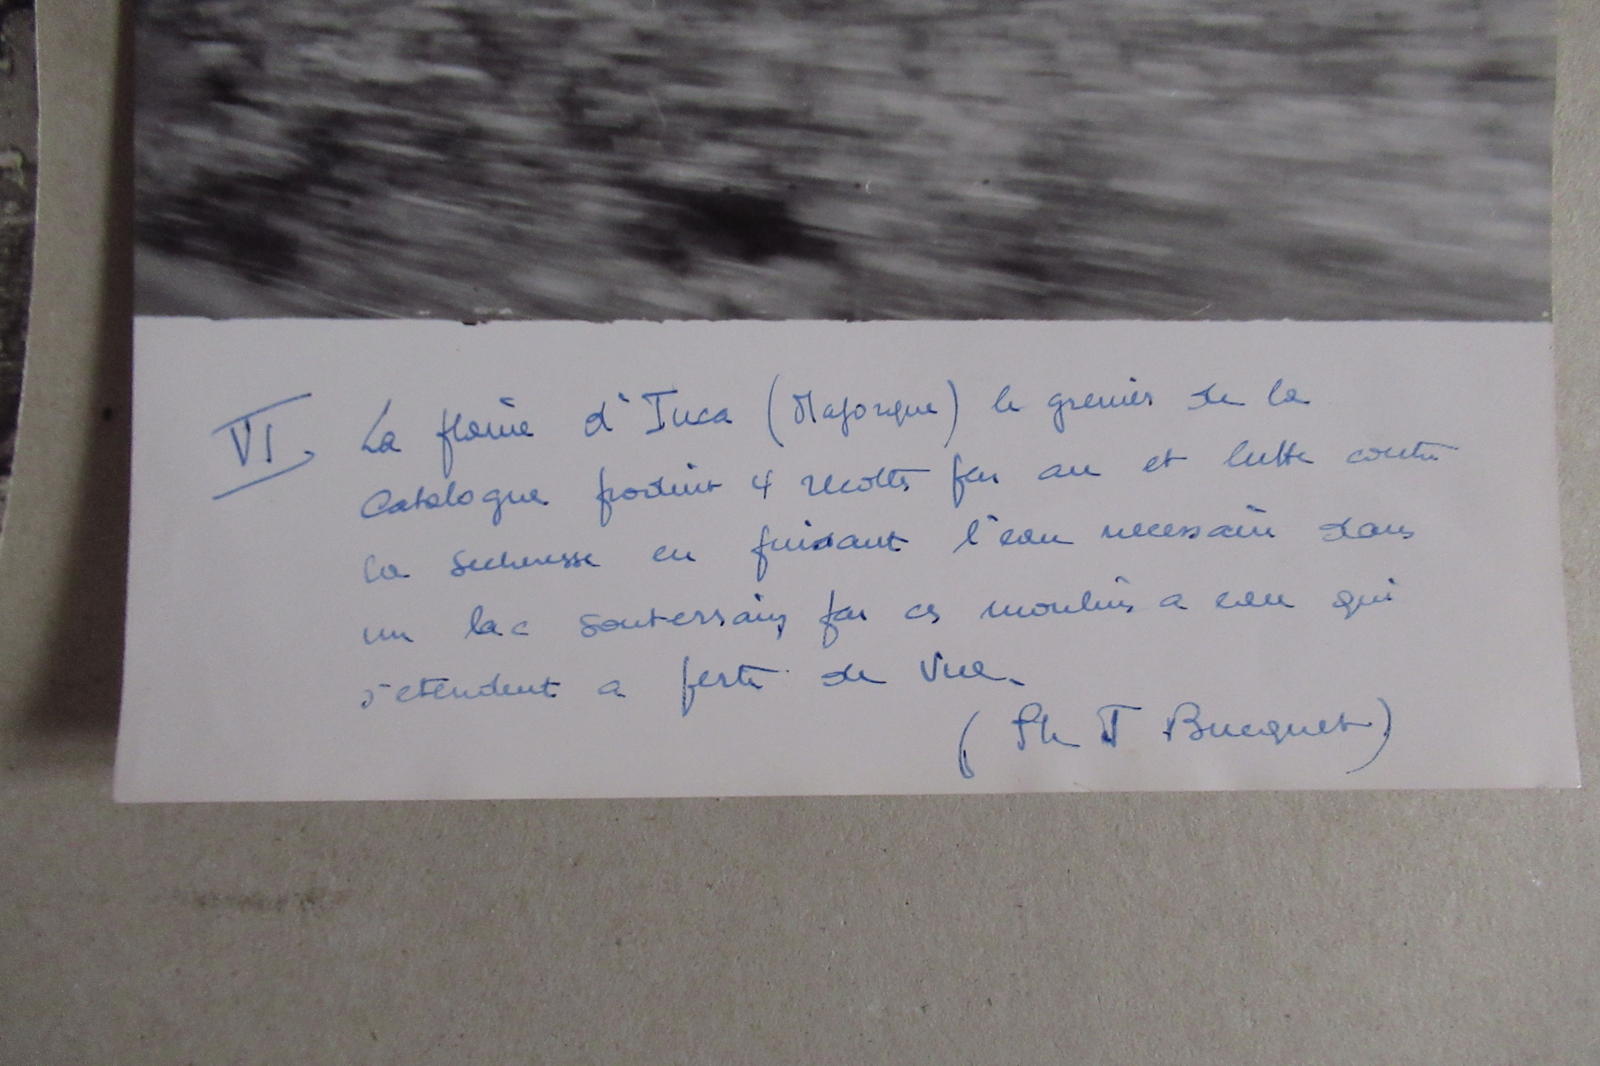 VI. La plaine d'Inca (Majorque) le grenier de la
Catalogne produit 4 recoltes par an et lutte contre
la secheresse en puisant l'eau necessaire dans
un lac souterrain par ces moulins a eau qui
s'etendent a perte de vue.
(Ph T Bucquet)